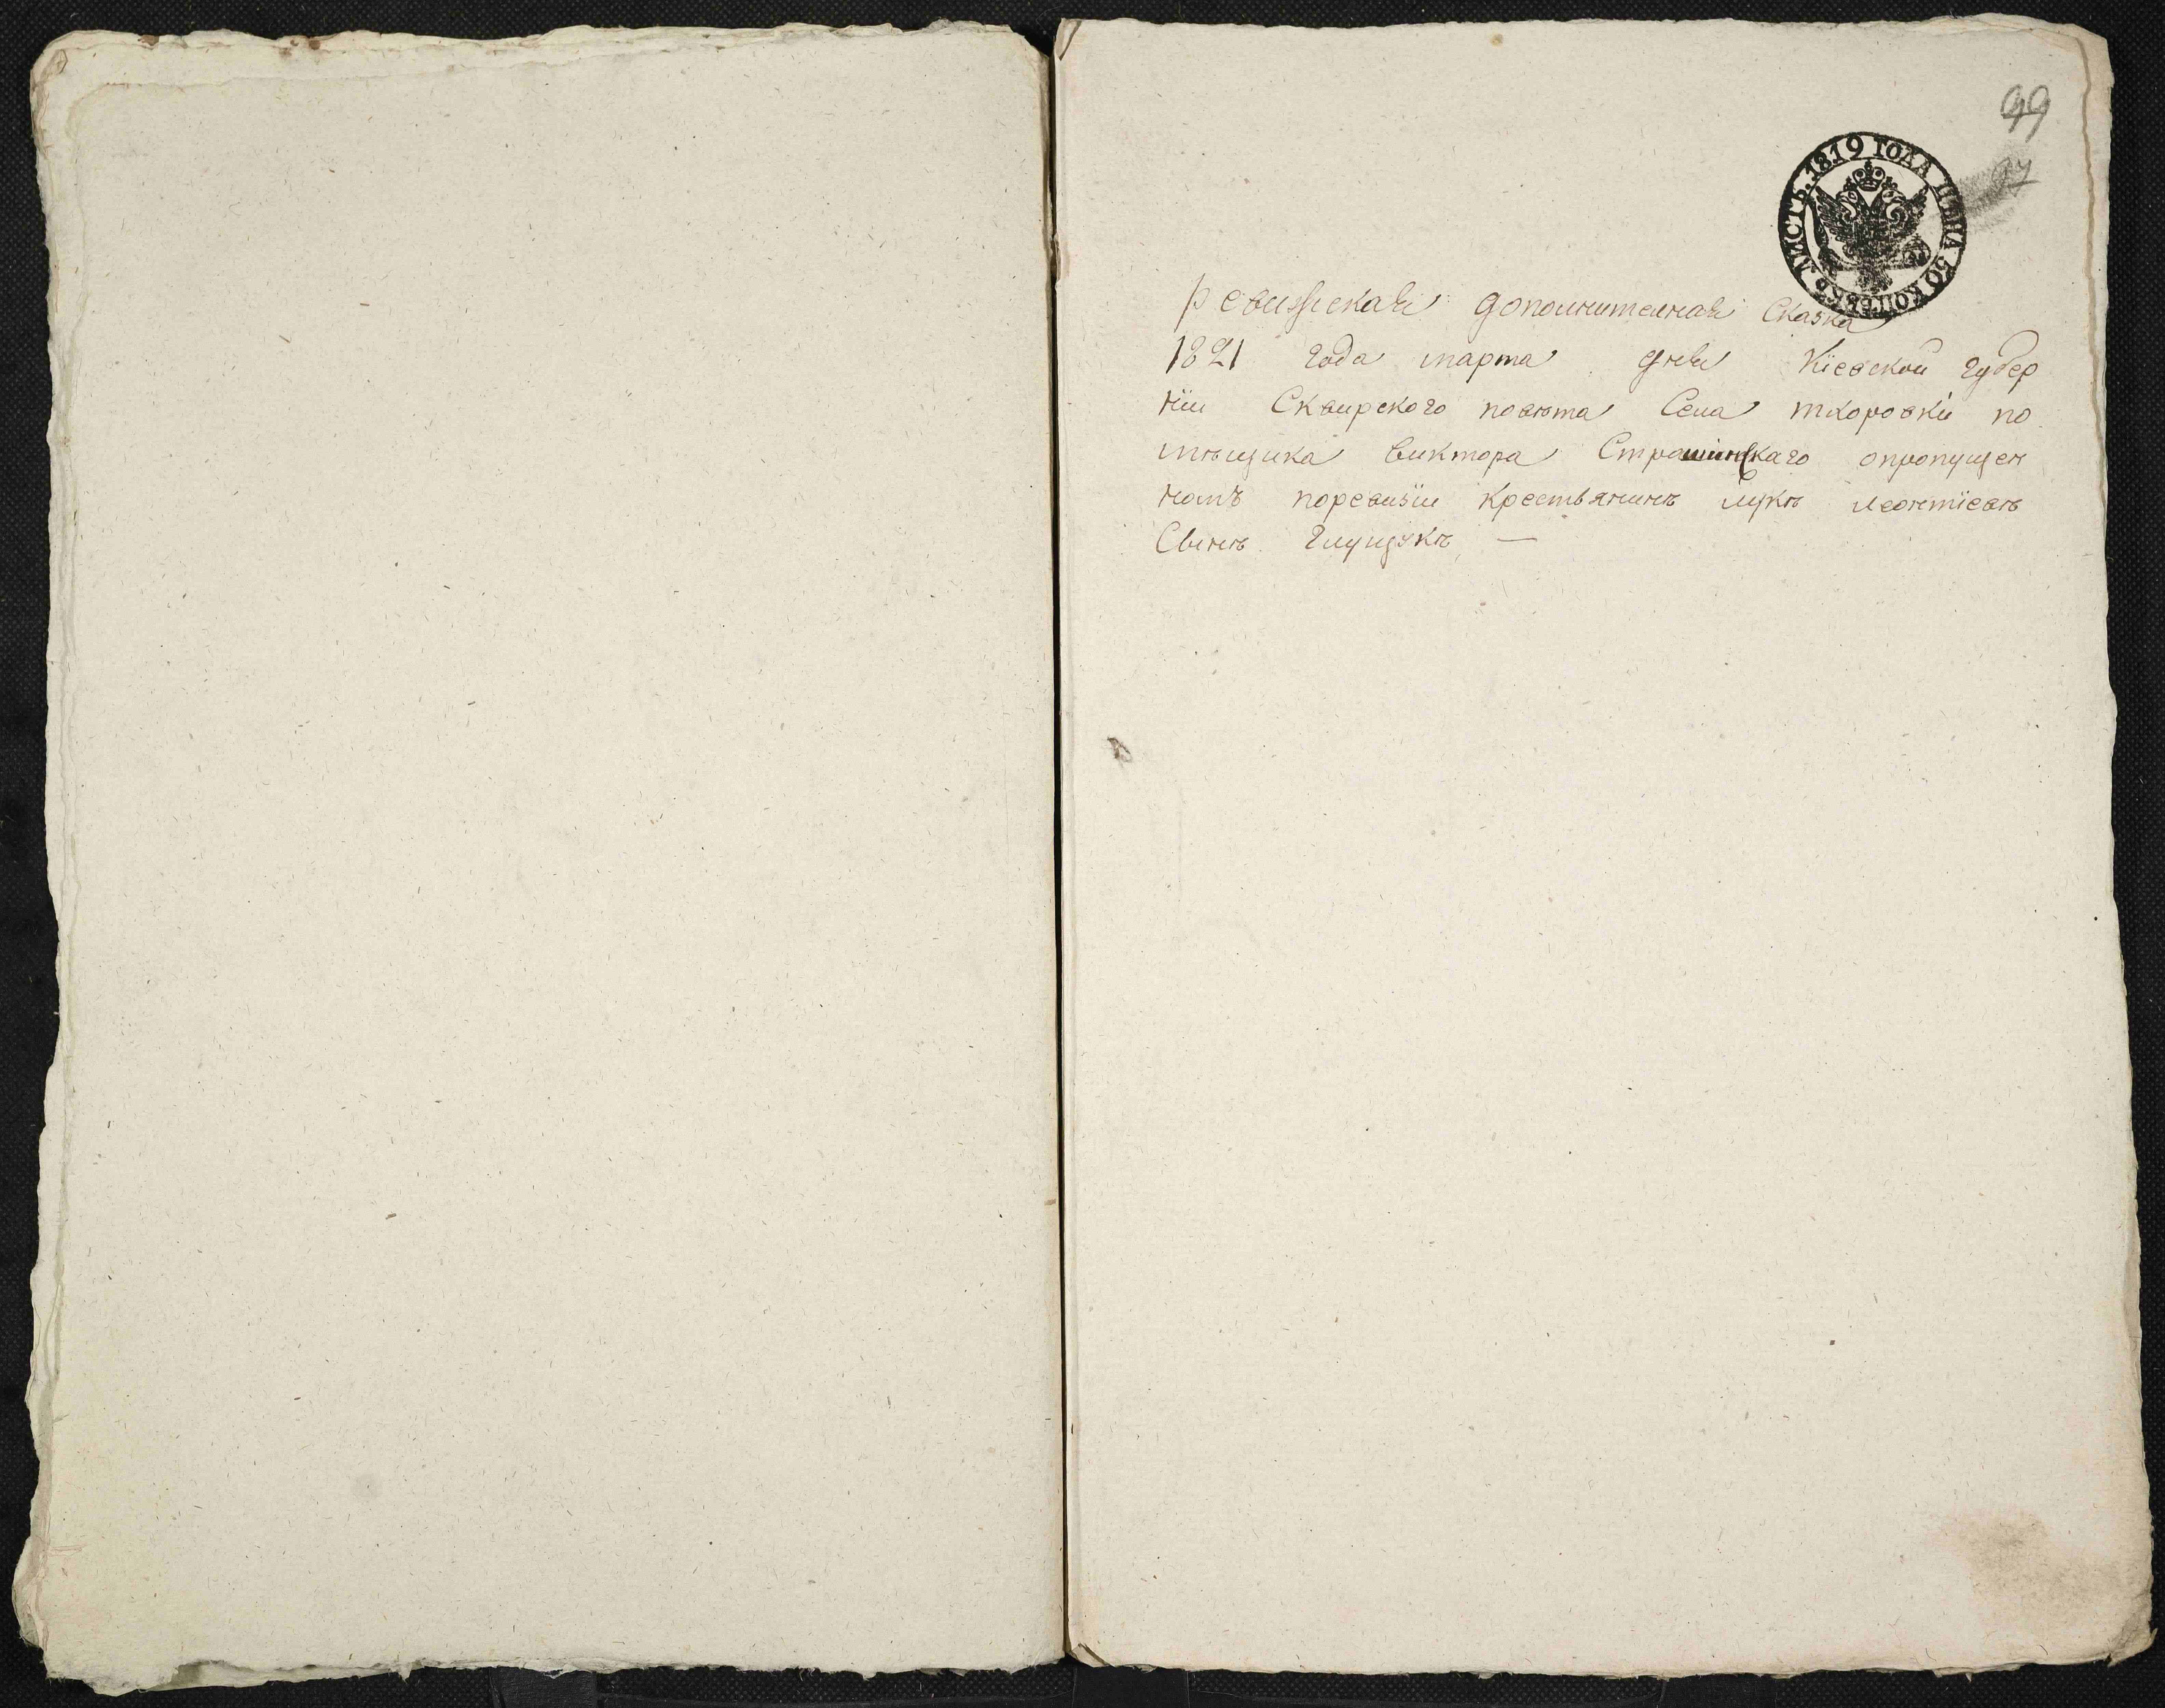 99
97
ЛИСТЪ. 1819 ГОДА ЦѢНА 50 КОПѢЕКЪ
Ревизская дополнителная Сказка
1821 года марта дня Кіевской губер
ніи Сквирского повѣта Села ткоровки по
мѣщика виктора Страшинскаго опропущен
номъ поревизіи крестьянинѣ лукѣ леонтіевѣ
Сынѣ глущукѣ —